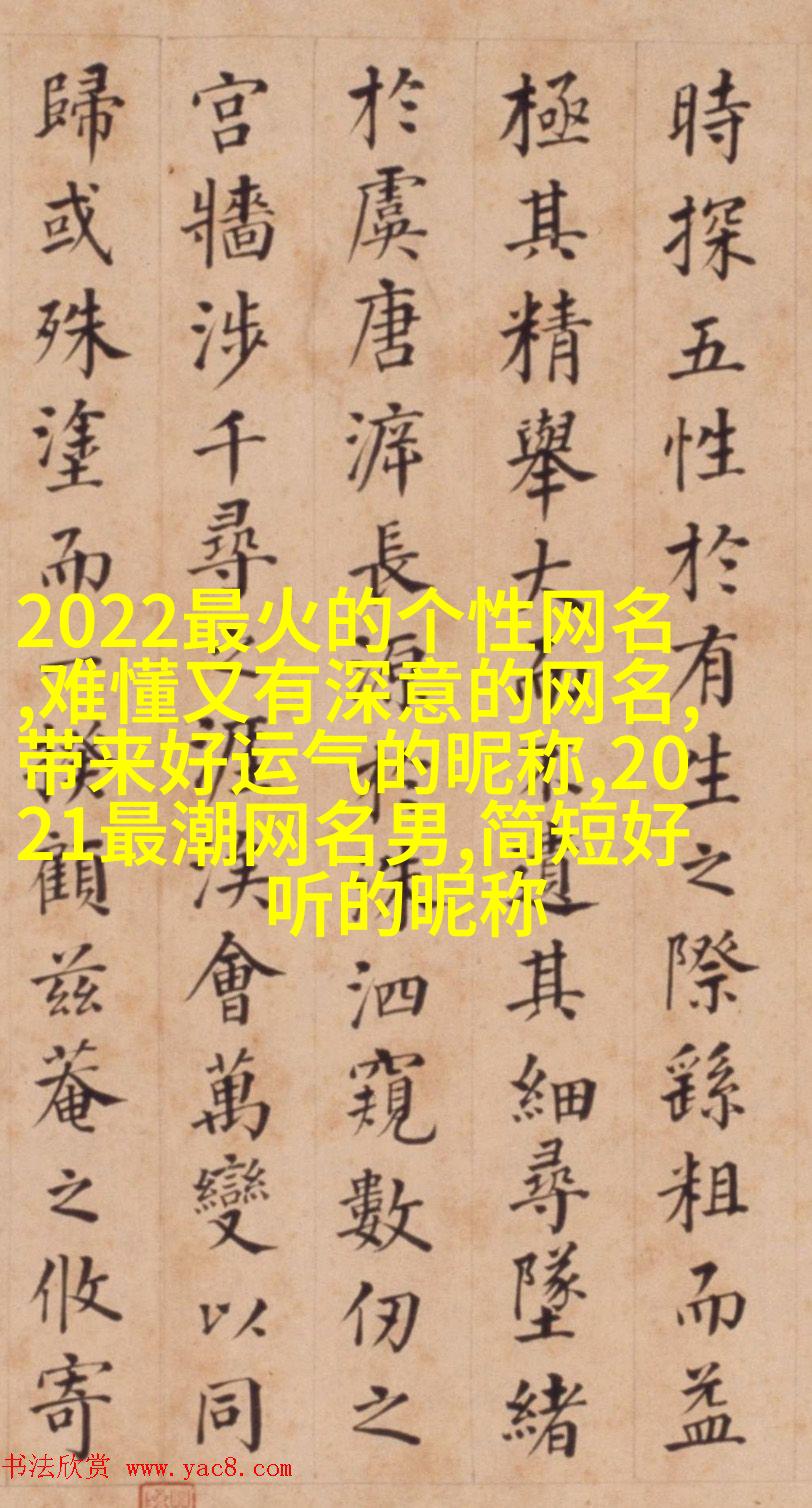 時探五性於有生之際繇粗而益
極其精舉大而不遺其細尋墜緒
於虞唐長源於洙泗窺數仞之
宮牆涉千尋之涯涘會萬變以同
歸或殊塗而一揆顧茲菴之攸寄
2022最火的个性网名
,难懂又有深意的网名,
带来好运气的昵称,20
21最潮网名男,简短好
听的昵称
书法欣赏 www.yac8.com